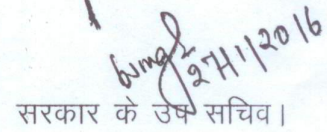 27/1/2016
सरकार के उप सचिव।